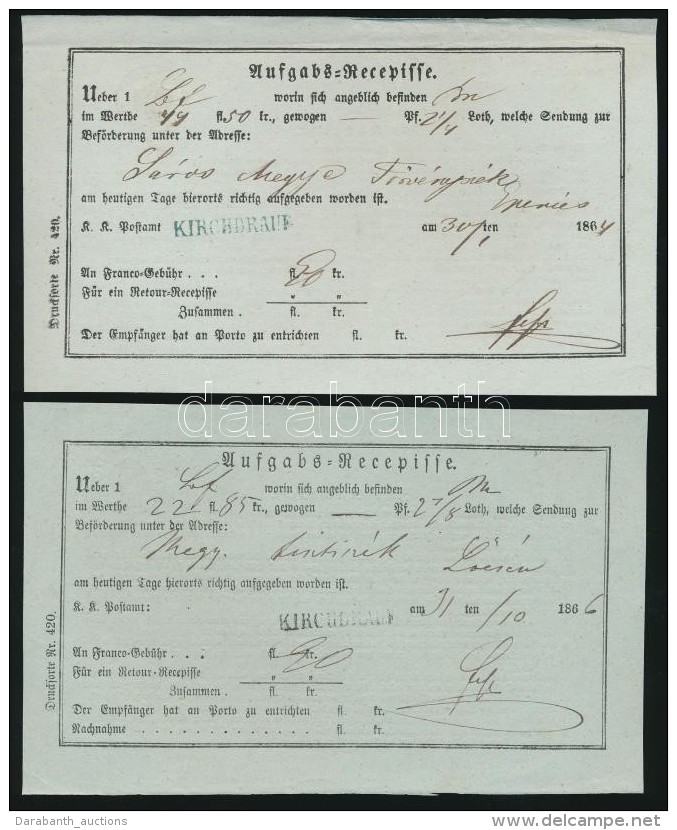 Aufgabs=Recepisse.
Ueber 1 Bf worin sich angeblich befinden Bn
im Werthe 44 fl. 50 kr., gewogen — Pf. 2 1/4 Loth, welche Sendung zur
Beförderung unter der Adresse:
Sáros Megye Törvényszék
Eperies
am heutigen Tage hierorts richtig aufgegeben worden ist.
K. K. Postamt KIRCHDRAUF am 30/1 ten 1864
An Franco=Gebühr . . . fl. 20 kr.
Für ein Retour=Recepisse " "
Zusammen . fl. kr.
Der Empfänger hat an Porto zu entrichten fl. kr.
Drucksorte Nr. 420.
darabanth
Aufgabs=Recepisse.
Ueber 1 Bf worin sich angeblich befinden Bn
im Werthe 22 fl. 85 kr., gewogen — Pf. 2 7/8 Loth, welche Sendung zur
Beförderung unter der Adresse:
Megy. Lőcsén
am heutigen Tage hierorts richtig aufgegeben worden ist.
K. K. Postamt: KIRCHDRAUF am 31 ten /10 1866
An Franco=Gebühr . . . fl. 20 kr.
Für ein Retour=Recepisse " "
Zusammen . fl. kr.
Der Empfänger hat an Porto zu entrichten fl. kr.
Nachnahme . . . . . . . . . . . . . fl. kr.
Drucksorte Nr. 420.
Darabanth_auctions
www.delcampe.net